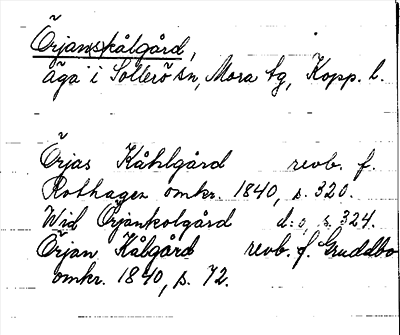 Örjanskålgård,
äga i Sollerö sn, Mora tg, Kopp. l.
Örjas Kåhlgård revb. f.
Rothagen omkr. 1840, s. 320.
Wid Örjankolgård d:o, s. 324.
Örjan Kålgård revb. f. Gruddbo
omkr. 1840, s. 72.